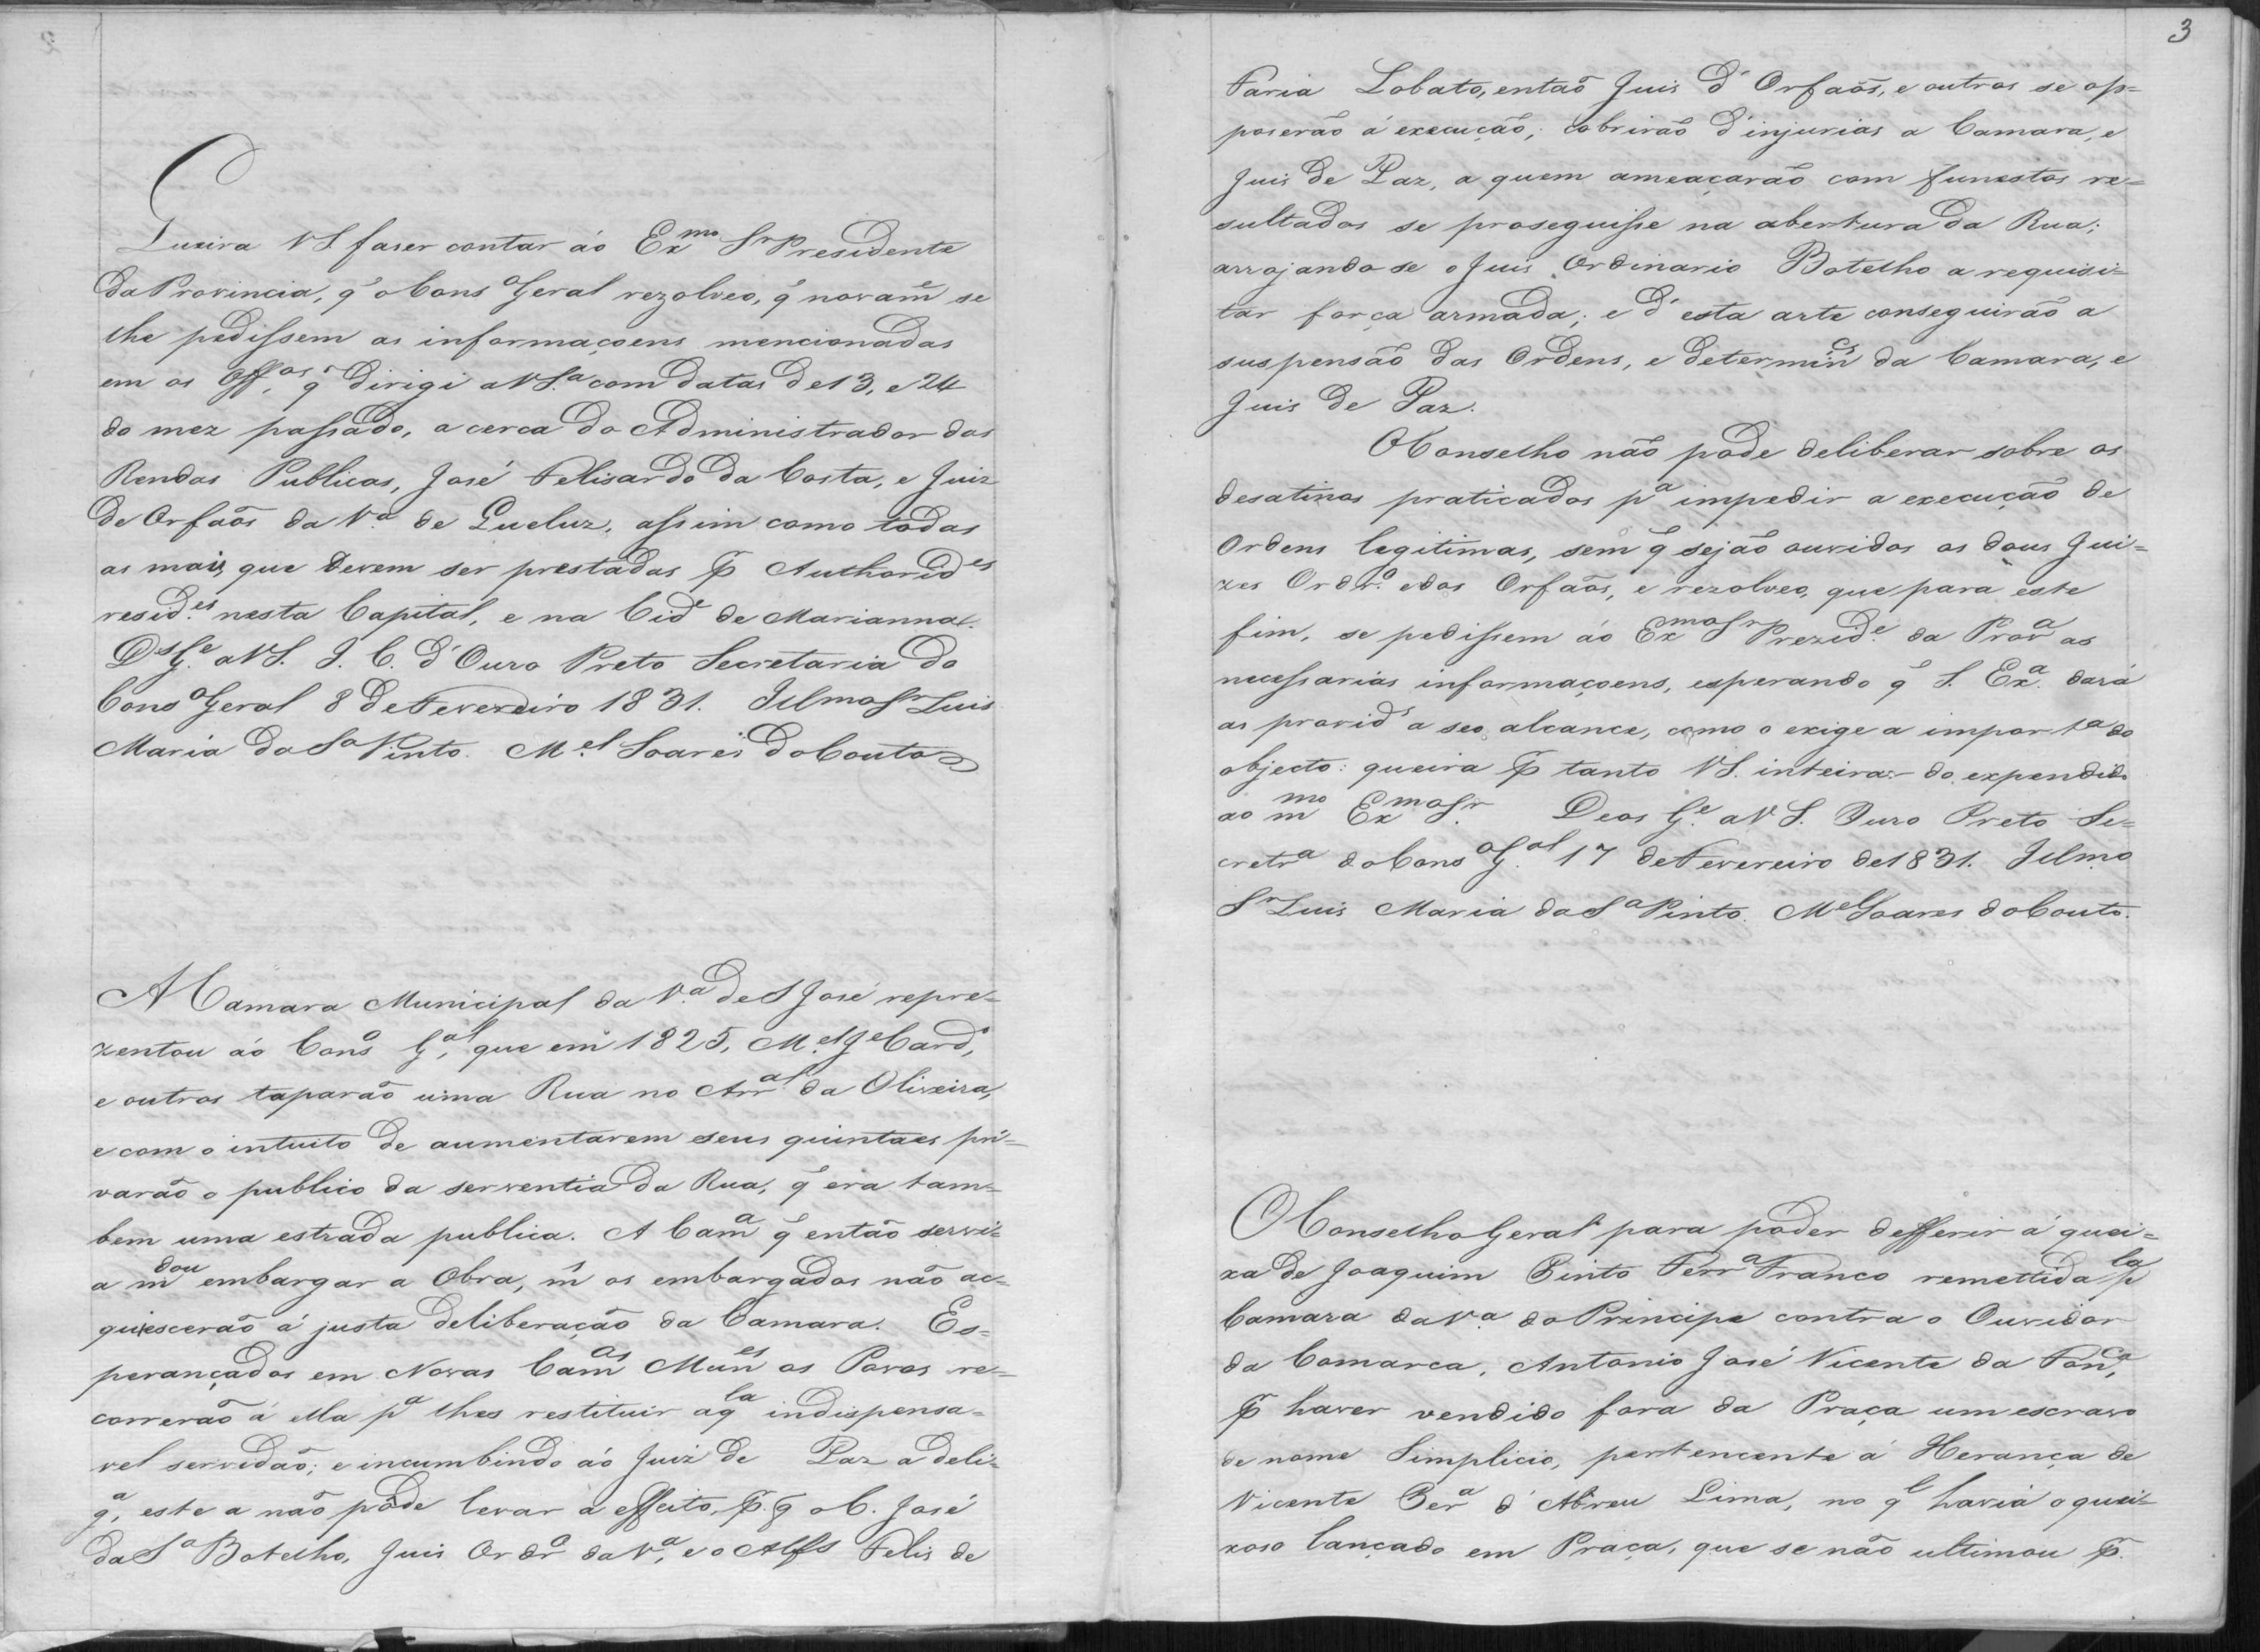 Queira VS. faser contar áo Exmo Sr Presidente
da Provincia, q̃ o Conso Geral rezolveo, q̃ novame se
lhe pedissem as informaçoens mencionadas
em os Offos, q̃ dirigi a VS.a com datas de 13, e 24
do mez passado, a cerca do Administrador das
Rendas Publicas, José Felisardo da Costa, e Juiz
de Orfaõs da Va de Queluz, assim como todas
as mais, que devem ser prestadas p̃ Authorides
resides nesta Capital, e na Cide de Marianna.
Ds Ge a VS. I. C. d'Ouro Preto Secretaria do
Conso Geral 8 de Fevereiro 1831. Illmo Sr Luis
Maria da Sa Pinto. Mel Soares do Couto
A Camara Municipal da Va de S José repre-
zentou áo Conso Gal, que em 1825, Mel Je Card,
e outros taparaõ uma Rua no Arral da Oliveira,
e com o intuito de aumentarem seus quintaes pri-
varaõ o publico da serventia da Rua, q̃ era tam-
bem uma estrada publica. A Cama q̃ entaõ servi-
a mdou embargar a Obra, ms os embargados naõ ac-
quiescerão á justa deliberação da Camara. Es-
perançados em Novas Camas Munes os Povos re-
correraõ á ella pa lhes restituir aqla indispensa-
vel servidaõ; e incumbindo áo Juiz de Paz a deli-
ga, este a naõ póde levar a effeito, p̃ q̃ o C. José
da Sa Botelho, Juis Ordro da Va, e o Alfs Felis de
3
Faria Lobato, entaõ Juis d'Orfaõs, e outros se op-
poserão á execução; cobrirão d'injurias a Camara, e
Juis de Paz, a quem ameaçarão com funestos re-
sultados se proseguisse na abertura da Rua;
arrojando se o Juis Ordinario Botelho a requisi-
tar força armada; e d'esta arte conseguirão a
suspensão das Ordens, e determines da Camara, e
Juis de Paz.
O Conselho naõ pode deliberar sobre os
desatinos praticados pa impedir a execução de
Ordens legitimas, sem q̃ sejão ouvidos os dous Jui-
zes Ordro. e dos Orfaõs, e rezolveo, que para este
fim, se pedissem áo Exmo Sr Prezide da Prova as
necessarias informaçoens, esperando q̃ S. Exa. dará
as provids a seo alcance, como o exige a importa do
objecto: queira p̃ tanto VS. inteirar do expendido
ao mmo Exmo Sr. Deos Ge a VS. Ouro Preto Se-
cretra do Conso Gal 17 de Fevereiro de 1831. Illmo
Sr Luis Maria da Sa Pinto. Mel Soares do Couto.
O Conselho Geral para poder defferir á quei-
xa de Joaquim Pinto Ferra Franco remettida pla
Camara da Va do Principe contra o Ouvidor
da Comarca, Antonio José Vicente da Fonca,
p̃ haver vendido fora da Praça um escravo
de nome Simplicio, pertencente á Herança de
Vicente Pera d'Abreu Lima, no ql havia o quei-
xoso lançado em Praça, que se não ultimou p̃